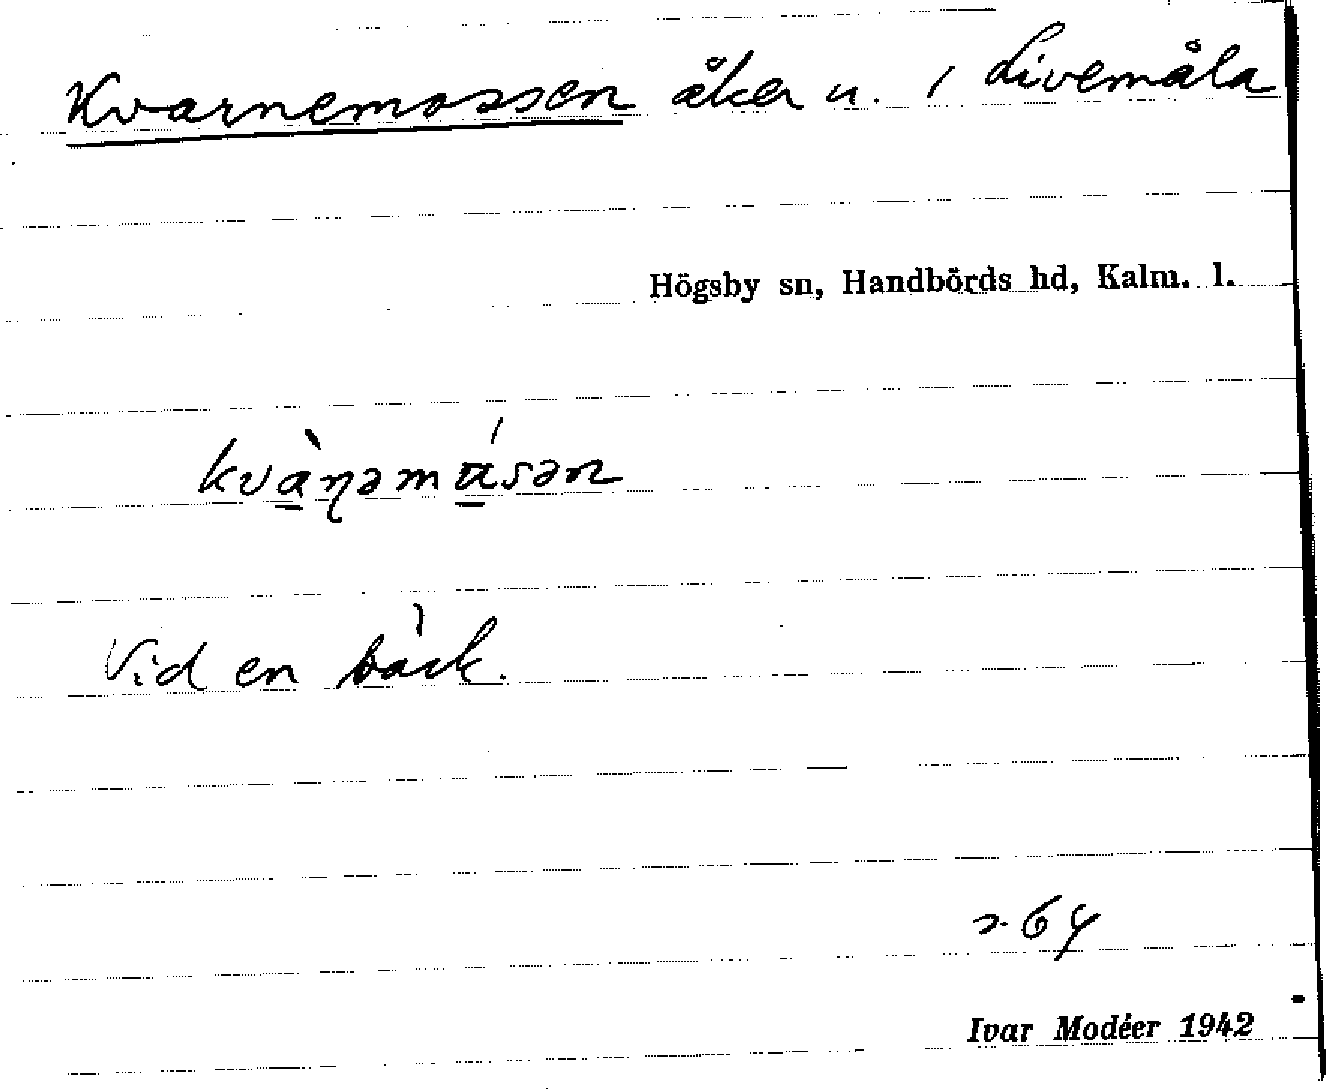 Kvarnemossen åker u. i Livemåla
Högsby sn, Handbörds hd, Kalm. l.
kvàɳəmúsən
Vid en bäck.
264
Ivar Modéer 1942